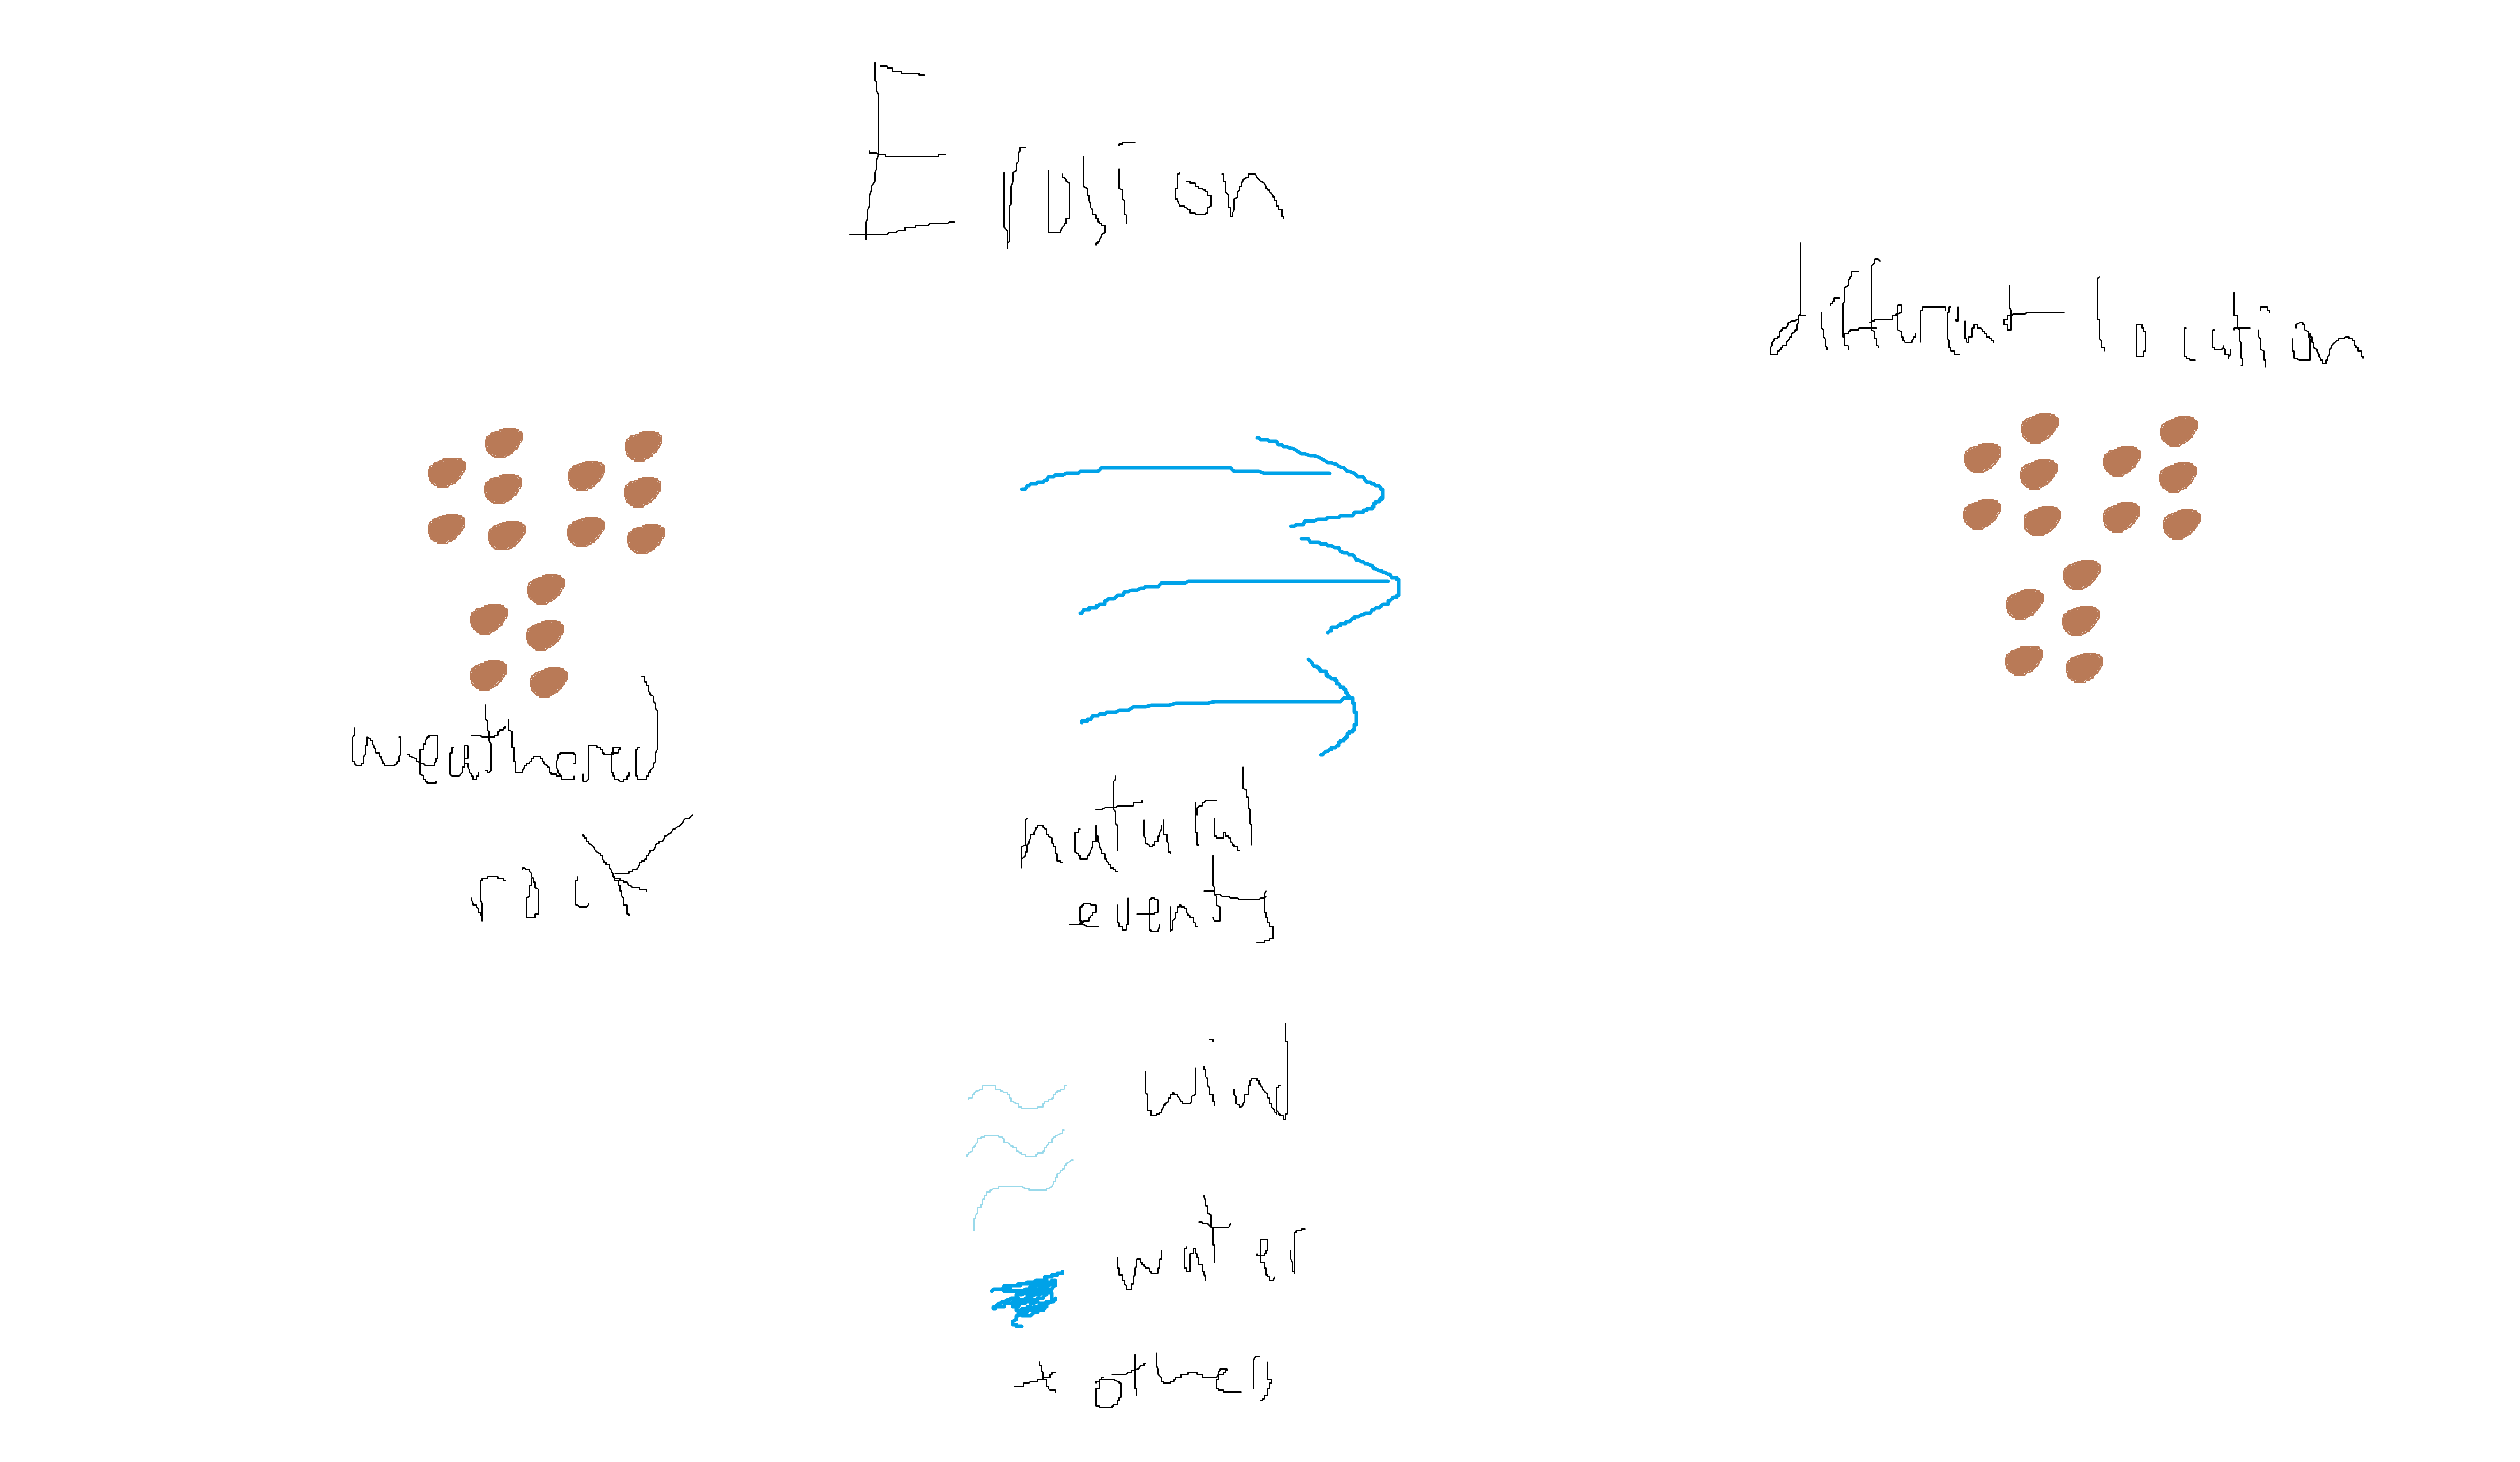 Erosion
different location
weathered
rock
natural
events
wind
water
+ others